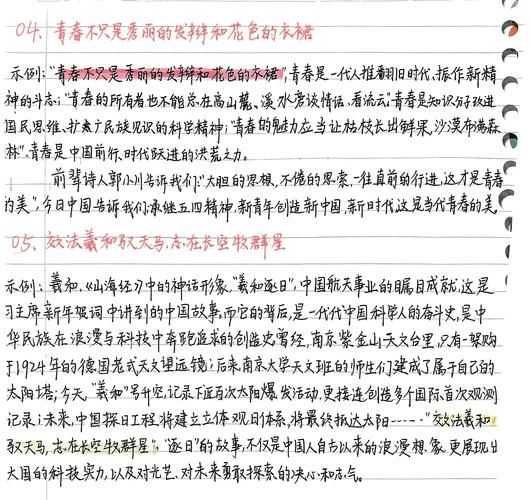 04、青春不只是秀丽的发辫和花色的衣裙
示例:"青春不只是秀丽的发辫和花色的衣裙",青春是一代人推翻旧时代,振作新精
神的斗志;"青春的所有者也不能总在高山麓、溪水旁谈情话、看流云"青春是知识分子改进
国民思维、扩大广民族见识的科学精神;"青春的魅力应当让枯枝长出鲜果,沙漠布满森
林",青春是中国前行、时代跃进的洪荒之力。
前辈诗人郭小川告诉我们:"大胆的思想,不倦的思索,一往直前的行进,这才是青春
的美",今日中国告诉我们:承继五四精神,新青年创造新中国,新时代,这是当代青春的美。
05、效法羲和驭天马,志在长空牧群星
示例:羲和,《山海经》中的神话形象,"羲和逐日",中国航天事业的瞩目成就,这是
习主席新年贺词中讲到的中国故事,而它的背后,是一代代中国科学人的奋斗史,是中
华民族在浪漫与科技中奔跑追求的创造史。曾经,南京紫金山天文台里,只有一架购
于1924年的德国老式天文望远镜;后来南京大学天文班的师生们建成了属于自己的
太阳塔;今天,"羲和"号升空,记录下近百次太阳爆发活动,更接连创造多个国际首次观测
记录;未来,中国探日工程将建立立体观日体系,将最终抵达太阳……"效法羲和
驭天马,志在长空牧群星","逐日"的故事,不仅是中国人自古以来的浪漫想象,更展现出
大国的科技实力,以及对光芒、对未来勇敢探索的决心和志气。